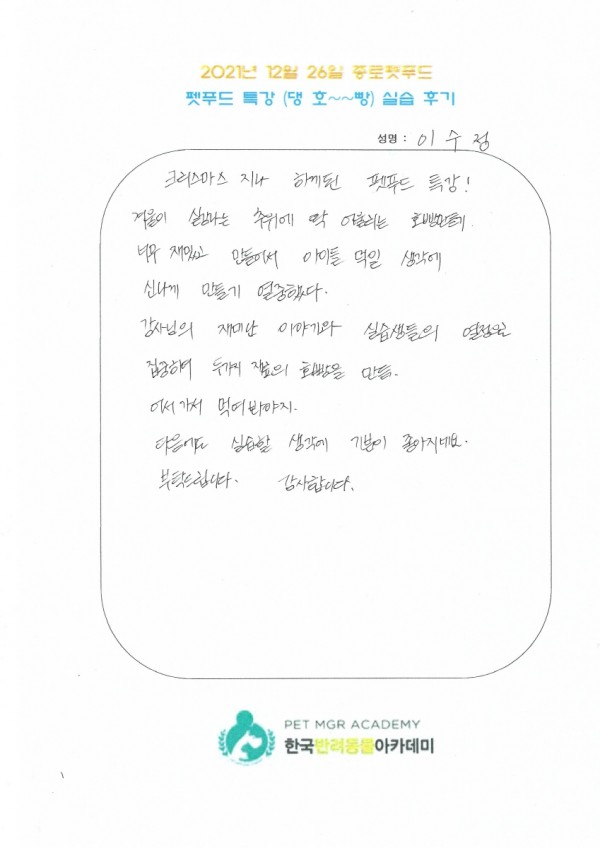 2021년 12월 26일 종로펫푸드
펫푸드 특강 (댕 호~~빵) 실습 후기
성명 : 이수정
크리스마스 지나 함께된 펫푸드 특강!
겨울이 실감나는 추위에 딱 어울리는 호빵만들기.
너무 재밌고 만들어서 아이들 먹일 생각에
신나게 만들기 열중했다.
강사님의 재미난 이야기와 실습생들의 열정으로
집중하며 두가지 재료의 호빵을 만듬.
어서 가서 먹여봐야지.
다음에도 실습할 생각에 기분이 좋아지네요.
부탁드립니다. 감사합니다.
PET MGR ACADEMY
한국반려동물아카데미